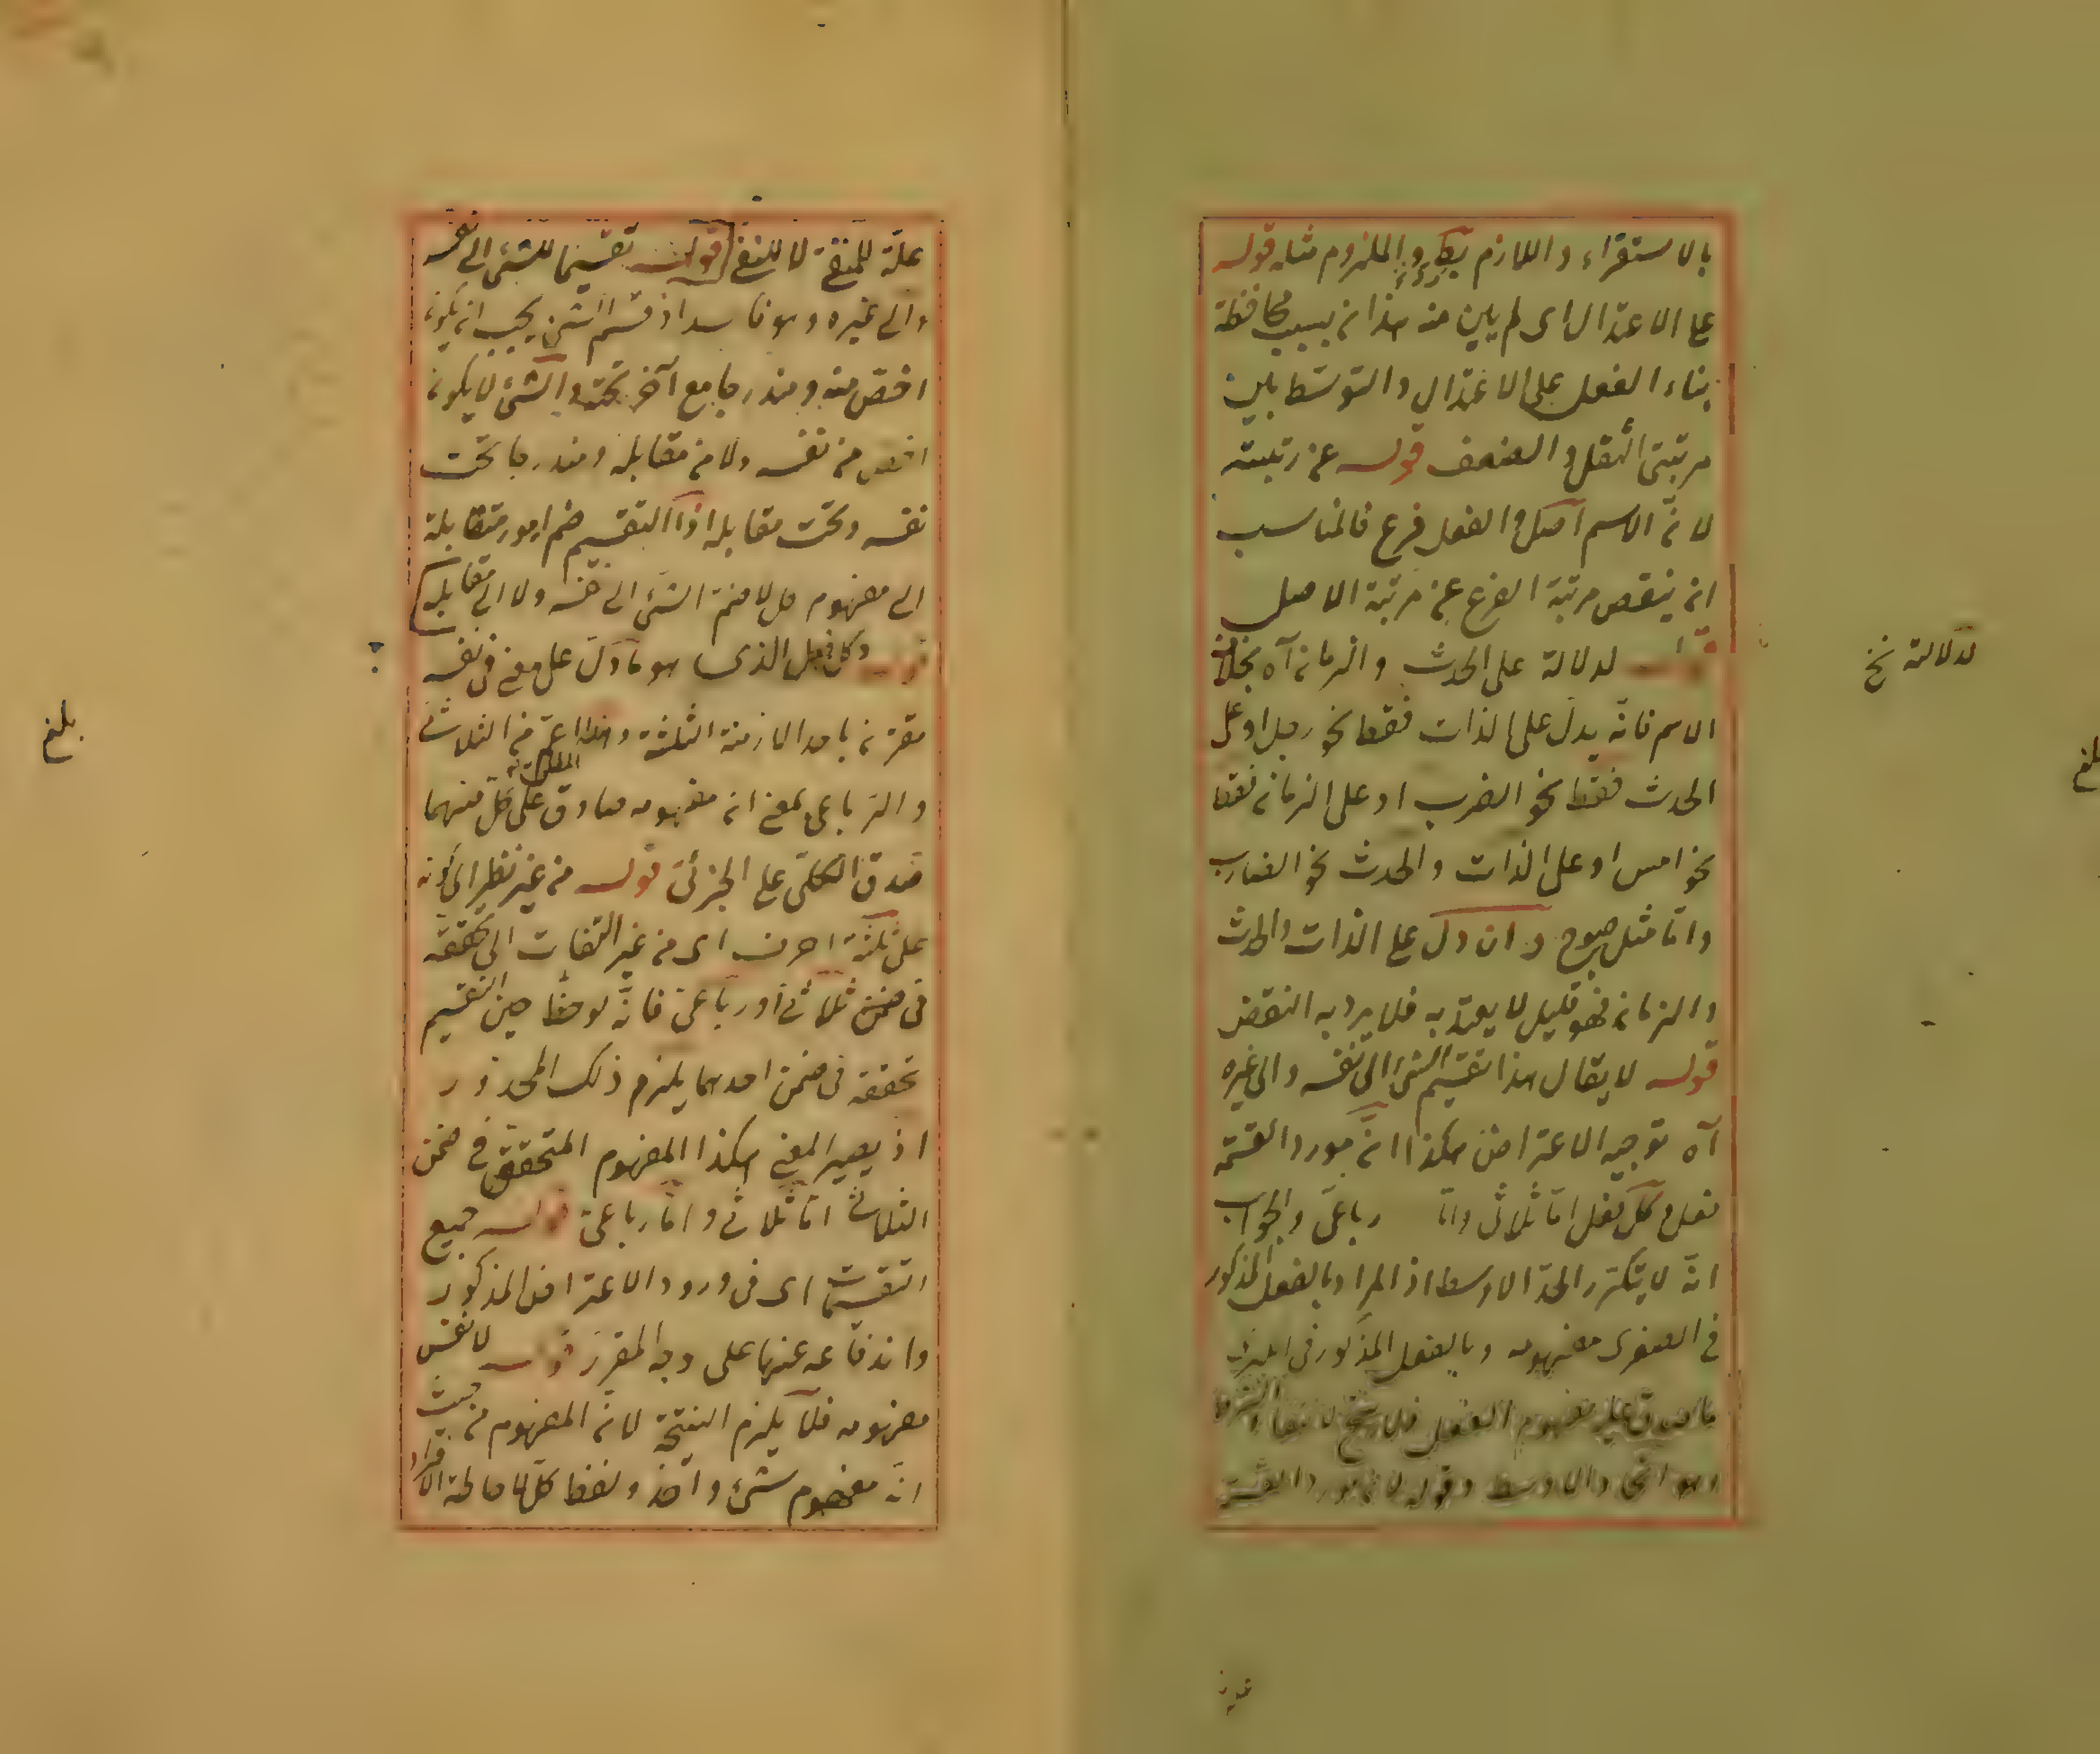 بالاستقراء واللازم بط والملزوم مثله قوله
على الاعتدال اى لم يلين منه هذا نه بسبب محافظة
بناء الفعل على الاعتدال والتوسّط بين
مرتبتى الثقل والضعف قوله عن رتبته
لانّ الاسم اصل والفعل فرع فالمناسب
ان ينقص مرتبة الفرع عن مرتبة الاصل
قوله لدلالة على الحدث والزمان آه بخلاف
الاسم فانّه يدلّ على الذات فقط نحو رجل او على
الحدث فقط نحو الضرب او على الزمان فقط
نحو امس او على الذات والحدث نحو الضارب
وامّا مثل صبوح وان دل على الذات والحدث
والزمان فهو قليل لا يعتدّ به فلا يرد به النقض
قوله لا يقال هذا تقسيم الشئ الى نفسه والى غيره
آه توجيه الاعتراض هكذا انّ مورد القسمة
فعل وكل فعل امّا ثلاثى وامّا رباعى والجواب
انّه لا يتكرّر الحدّ الاوسط اذ المراد بالفعل المذكور
فى الصغرى مفهومه وبالفعل المذكور فى الكبرى
ما صدق عليه مفهوم الفعل فلا ينتج لانتفاء الشرط
وهو اتحاد الاوسط وقوله لان مورد القسمة
لدلالته نخ
بلغ
علّة للمنفى لا للنفى قوله تقسيما للشئ الى نفسه
والى غيره وهو فاسد اذ قسم الشئ يجب ان يكون
اخصّ منه ومندرجا مع آخر تحته والشئ لا يكون
اخص من نفسه ولا من مقابله ومندرجا تحت
نفسه وتحت مقابله اذ التقسيم ضم امور متقابلة
الى مفهوم كل لا ضم الشئ الى نفسه ولا الى مقابله
قوله وكل فعل الذى هو ما دلّ على معنى فى نفسه
مقترن باحد الازمنة الثلثة وهذا اعمّ من الثلاثى
والرباعى بمعنى ان مفهومه صادق على كل منهما
صدق الكلّى على الجزئى قوله من غير نظر الى كونه
على ثلثة احرف اى من غير التفات الى تحققه
فى ضمن ثلاثى او رباعى فانّه لو لوحظ حين التقسيم
تحققه فى ضمن احدهما يلزم ذلك المحذور
اذ يصير المعنى هكذا المفهوم المتحقق فى ضمن
الثلاثى امّا ثلاثى وامّا رباعى قوله جميع
التقسيمات اى فى ورود الاعتراض المذكور
واندفاعه عنها على وجه المقرر قوله لا نفس
مفهومه فلا يلزم النتيجة لانّ المفهوم من حيث
انّه مفهوم شئ واحد ولفظ كلّ لاحاطة الافراد
بلغ